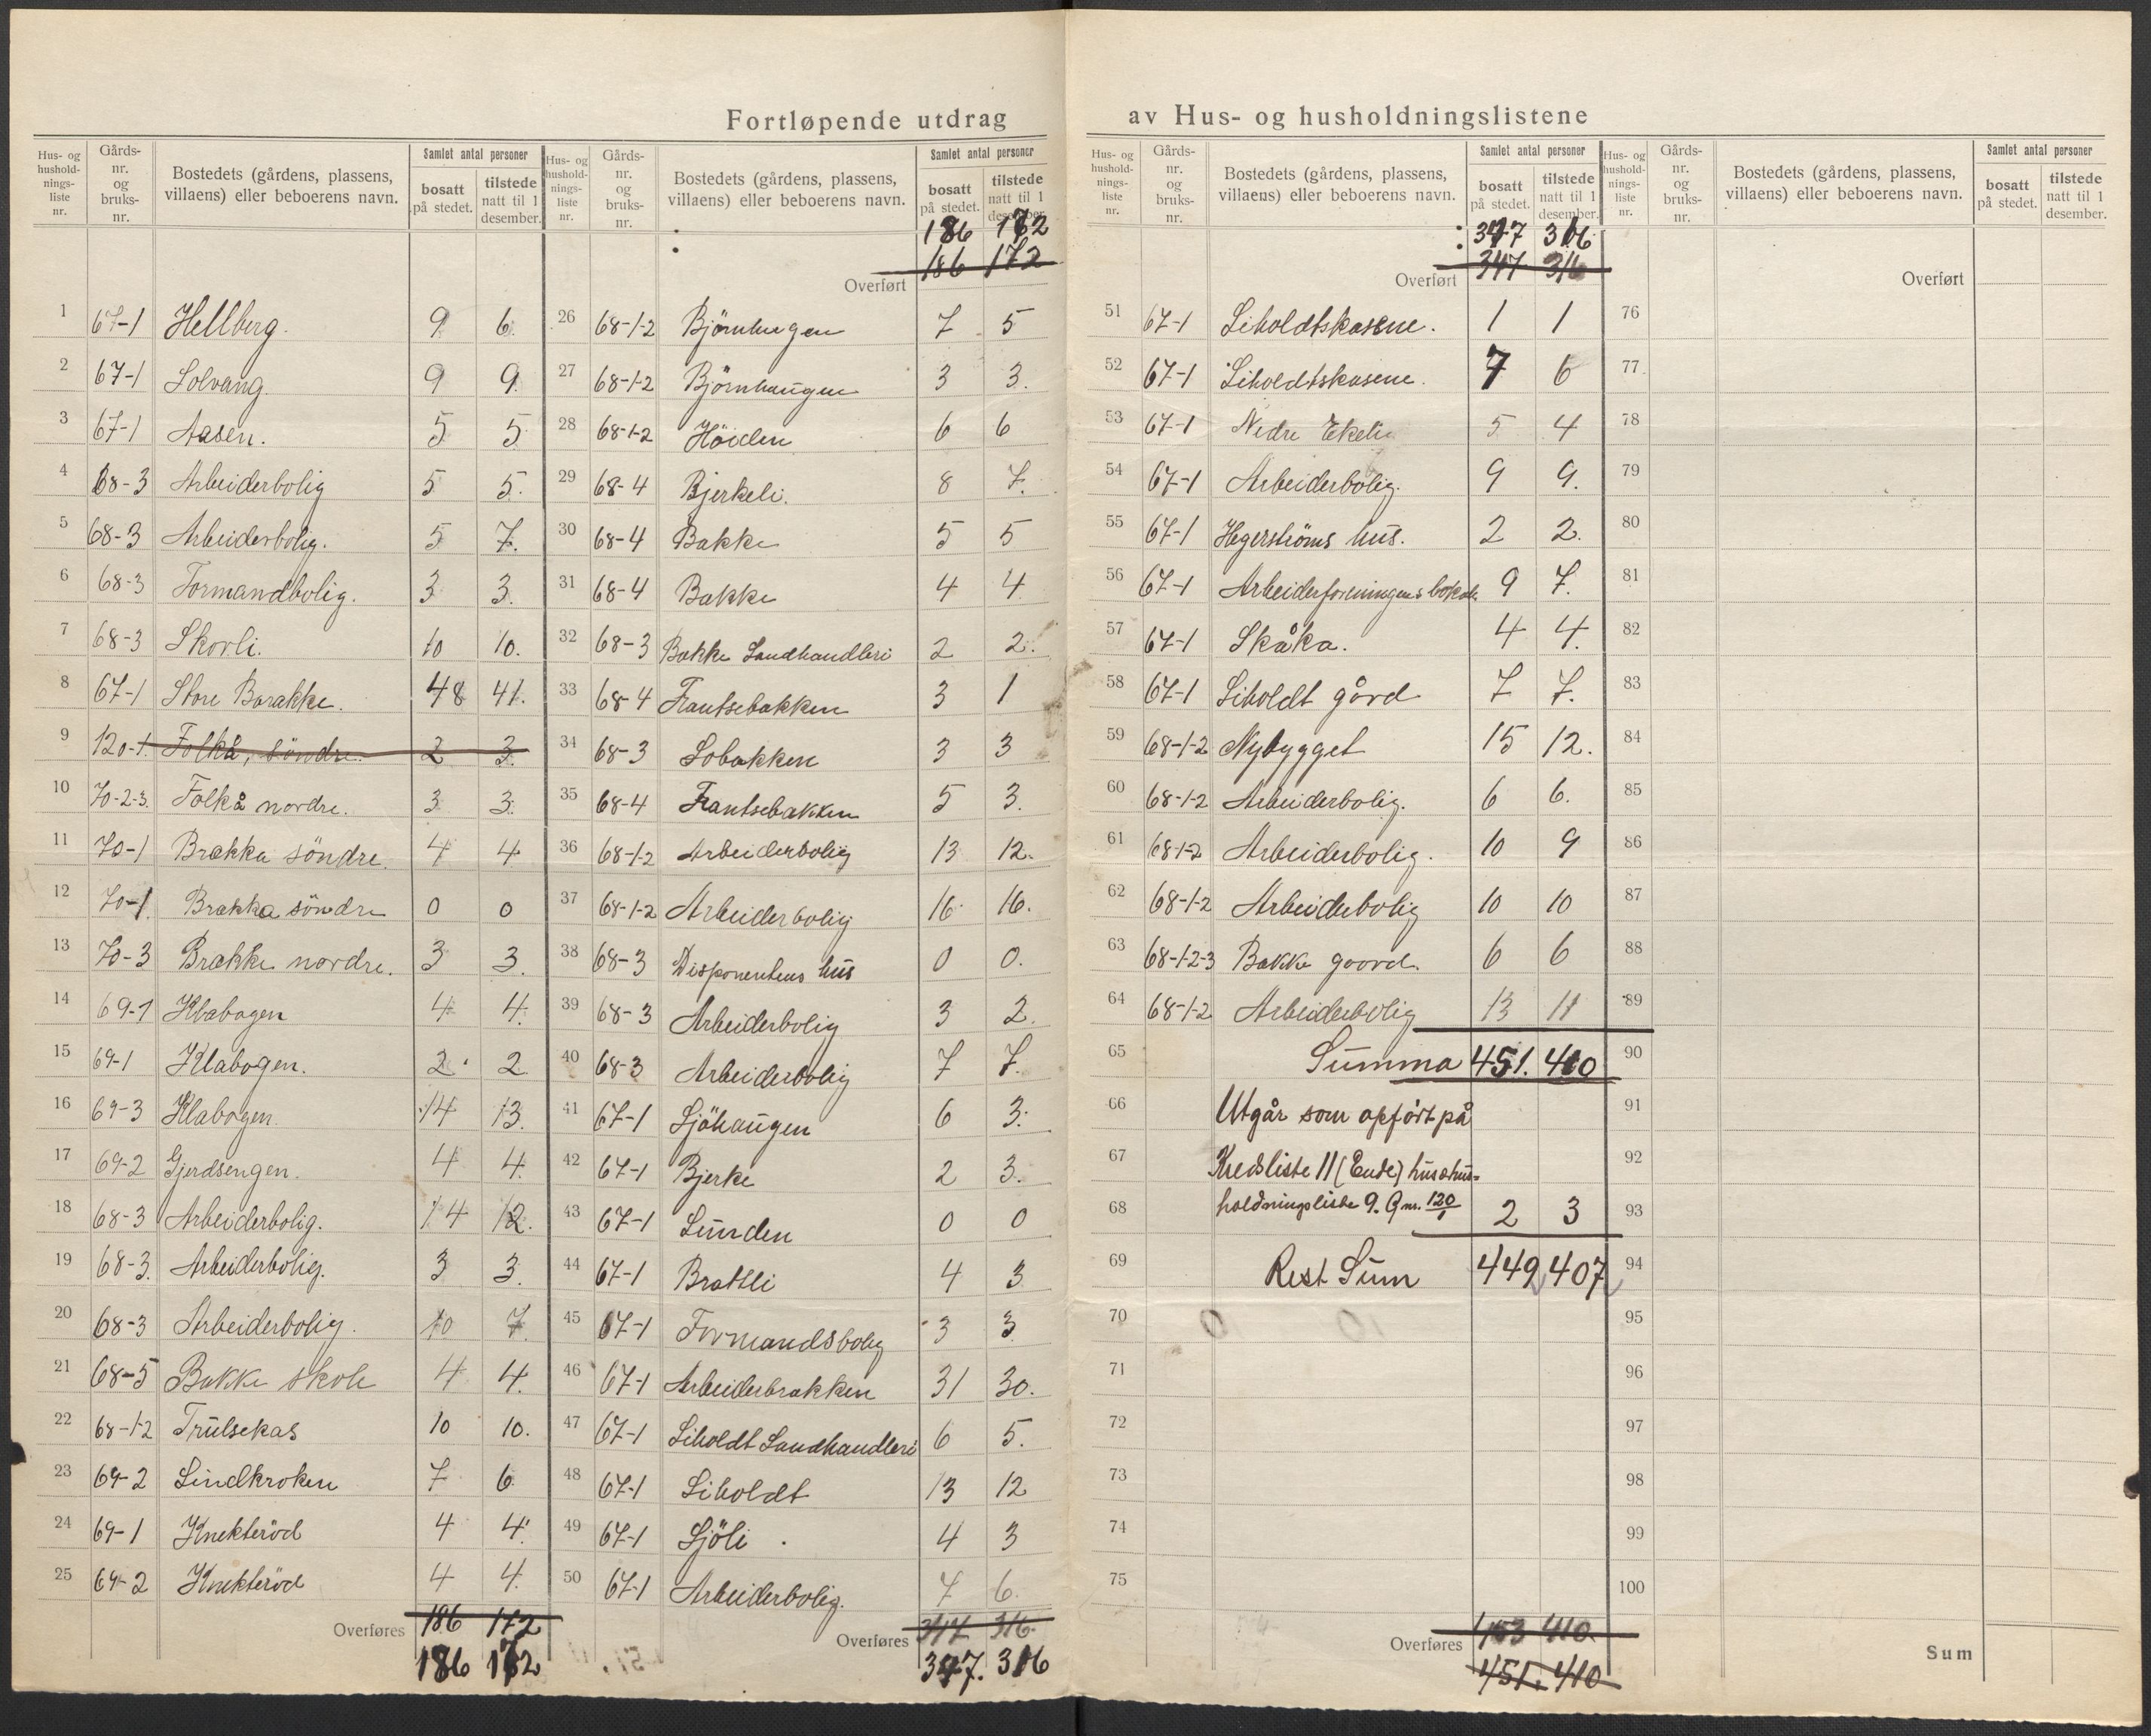 Fortløpende utdrag av Hus- og husholdningslistene
Hus- og husholdningsliste nr. | Gårds-nr. og bruks-nr. | Bostedets (gårdens, plassens, villaens) eller beboerens navn. | Samlet antal personer | bosatt på stedet. | tilstede natt til 1 desember.
1 67-1 Hellberg. 9 6.
2 67-1 Solvang. 9 9.
3 67-1 Aasen. 5 5.
4 68-3 Arbeiderbolig 5 5.
5 68-3 Arbeiderbolig. 5 7.
6 68-3 Formandbolig. 3 3.
7 68-3 Skorli. 10 10.
8 67-1 Store Barakke. 48 41.
9 120-1. Folkå, söndre. 2 3.
10 70-2-3. Folkå nordre. 3 3.
11 70-1 Brækka söndre. 4 4.
12 70-1. Brækka söndre 0 0
13 70-3 Brække nordre. 3 3.
14 69-1 Klabogen 4 4.
15 69-1 Klabogen. 2. 2
16 69-3 Klabogen 14 13.
17 69-2 Gjerdsengen. 4 4.
18 68-3 Arbeiderbolig. 14 12.
19 68-3. Arbeiderbolig. 3 3.
20 68-3 Arbeiderbolig. 10 7.
21 68-5 Bakke skole 4 4.
22 68-1-2 Trulsekas 10 10.
23 69-2 Lindkroken 7 6
24 69-1 Knekteröd 4 4.
25 69-2 Knekteröd 4 4.
Overføres 186 172
186 172
Hus- og husholdningsliste nr. | Gårds-nr. og bruks-nr. | Bostedets (gårdens, plassens, villaens) eller beboerens navn. | Samlet antal personer | bosatt på stedet. | tilstede natt til 1 desember.
186 172
Overført 186 172
26 68-1-2 Björnhugen 7 5
27 68-1-2 Björnhaugen 3 3.
28 68-1-2 Höiden 6 6
29 68-4 Bjerkeli. 8 7.
30 68-4 Bakke 5 5
31 68-4 Bakke 4 4
32 68-3 Bakke Landhandleri 2 2.
33 68-4 Frantsebakken 3 1
34 68-3 Lobakken 3 3
35 68-4 Frantsebakken 5 3.
36 68-1-2 Arbeiderbolig 13 12.
37 68-1-2 Arbeiderbolig 16 16.
38 68-3 Disponentens hus 0 0.
39 68-3 Arbeiderbolig 3 2.
40 68-3 Arbeiderbolig 7 7.
41 67-1 Sjöhaugen 6 3.
42 67-1 Bjerke 2 3.
43 67-1 Lunden 0 0
44 67-1 Brattli 4 3
45 67-1 Formandsbolig 3 3
46 67-1 Arbeiderbrakken 31 30.
47 67-1 Liholdt Landhandleri 6 5.
48 67-1 Liholdt 13 12
49 67-1 Sjöli. 4 3
50 67-1 Arbeiderbolig. 7 6.
Overføres 347 316.
347. 316
Hus- og husholdningsliste nr. | Gårds-nr. og bruks-nr. | Bostedets (gårdens, plassens, villaens) eller beboerens navn. | Samlet antal personer | bosatt på stedet. | tilstede natt til 1 desember.
347 316
Overført 347 316
51 67-1 Liholdtskasene. 1 1
52 67-1 Liholdtskasene. 7 6
53 67-1 Nedre Ekeli 5 4
54 67-1 Arbeiderbolig. 9 9.
55 67-1 Hegerströms hus. 2 2.
56 67-1 Arbeiderforeningens lokale 9 7.
57 67-1 Skåka. 4 4.
58 67-1 Liholdt gård 7 7.
59 68-1-2 Nybygget 15 12.
60 68-1-2 Arbeiderbolig. 6 6.
61 68-1-2 Arbeiderbolig. 10 9
62 68-1-2 Arbeiderbolig 10 10
63 68-1-2-3 Bakke gaard. 6 6
64 68-1-2 Arbeiderbolig 13 11
65 Summa 451. 410
66 Utgår som opfört på
67 Kredsliste 11 (Ende) hus&hus-
68 holdningsliste 9. Gnr. 120/1 2 3
69 Rest Sum 449 407
70
71
72
73
74
75
Overføres 453 410.
451. 410
Hus- og husholdningsliste nr. | Gårds-nr. og bruks-nr. | Bostedets (gårdens, plassens, villaens) eller beboerens navn. | Samlet antal personer | bosatt på stedet. | tilstede natt til 1 desember.
Overført
76
77
78
79
80
81
82
83
84
85
86
87
88
89
90
91
92
93
94
95
96
97
98
99
100
Sum